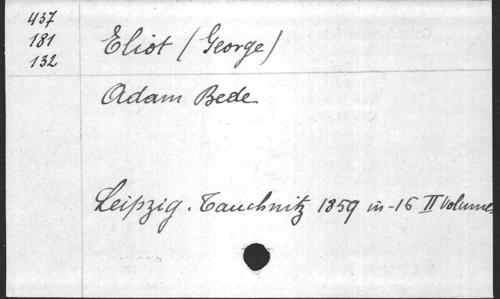 437
181
132
Eliot (George)
Adam Bede
Leipzig. Tauchnitz 1859 in-16 II Volumes